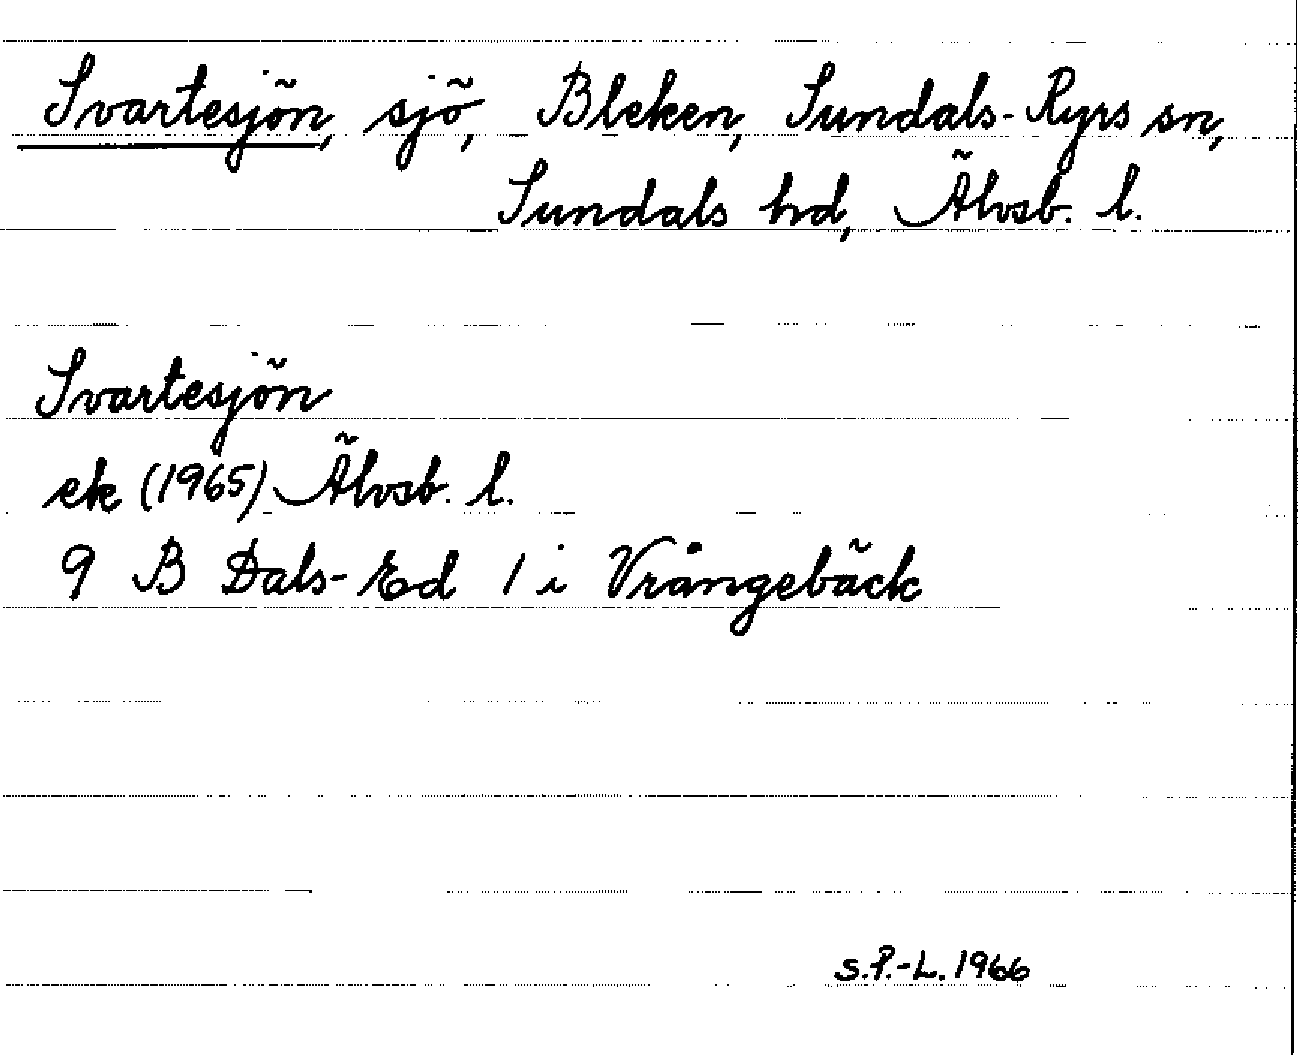 Svartesjön, sjö, Bleken, Sundals-Ryrs sn,
Sundals hd, Älvsb. l.
Svartesjön
ek (1965) Älvsb. l.
9 B Dals-Ed 1 i Vrångebäck
S.P.-L. 1966